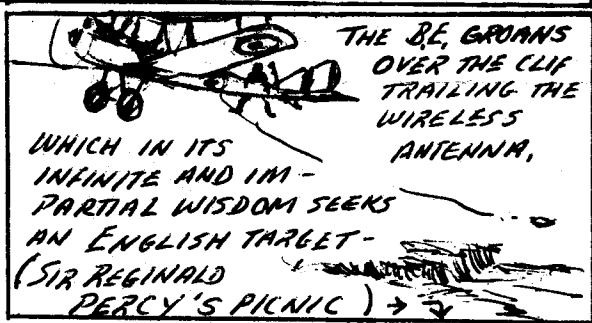 THE B.E. GROANS
OVER THE CLIF
TRAILING THE
WIRELESS
ANTENNA,
WHICH IN ITS
INFINITE AND IM-
PARTIAL WISDOM SEEKS
AN ENGLISH TARGET-
(SIR REGINALD
PERCY'S PICNIC) →